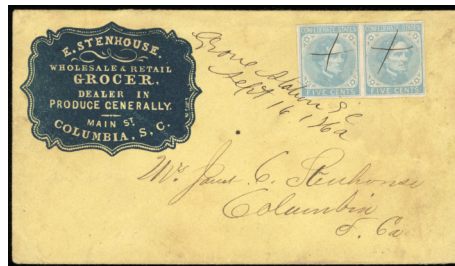 E. STENHOUSE.
WHOLESALE & RETAIL
GROCER.
DEALER IN
PRODUCE GENERALLY.
MAIN ST.
COLUMBIA, S. C.
Grove Station S C
Sept 16, 1862
CONFEDERATE STATES
FIVE CENTS
CONFEDERATE STATES
FIVE CENTS
C. Stenhouse
Columbia
S. Ca